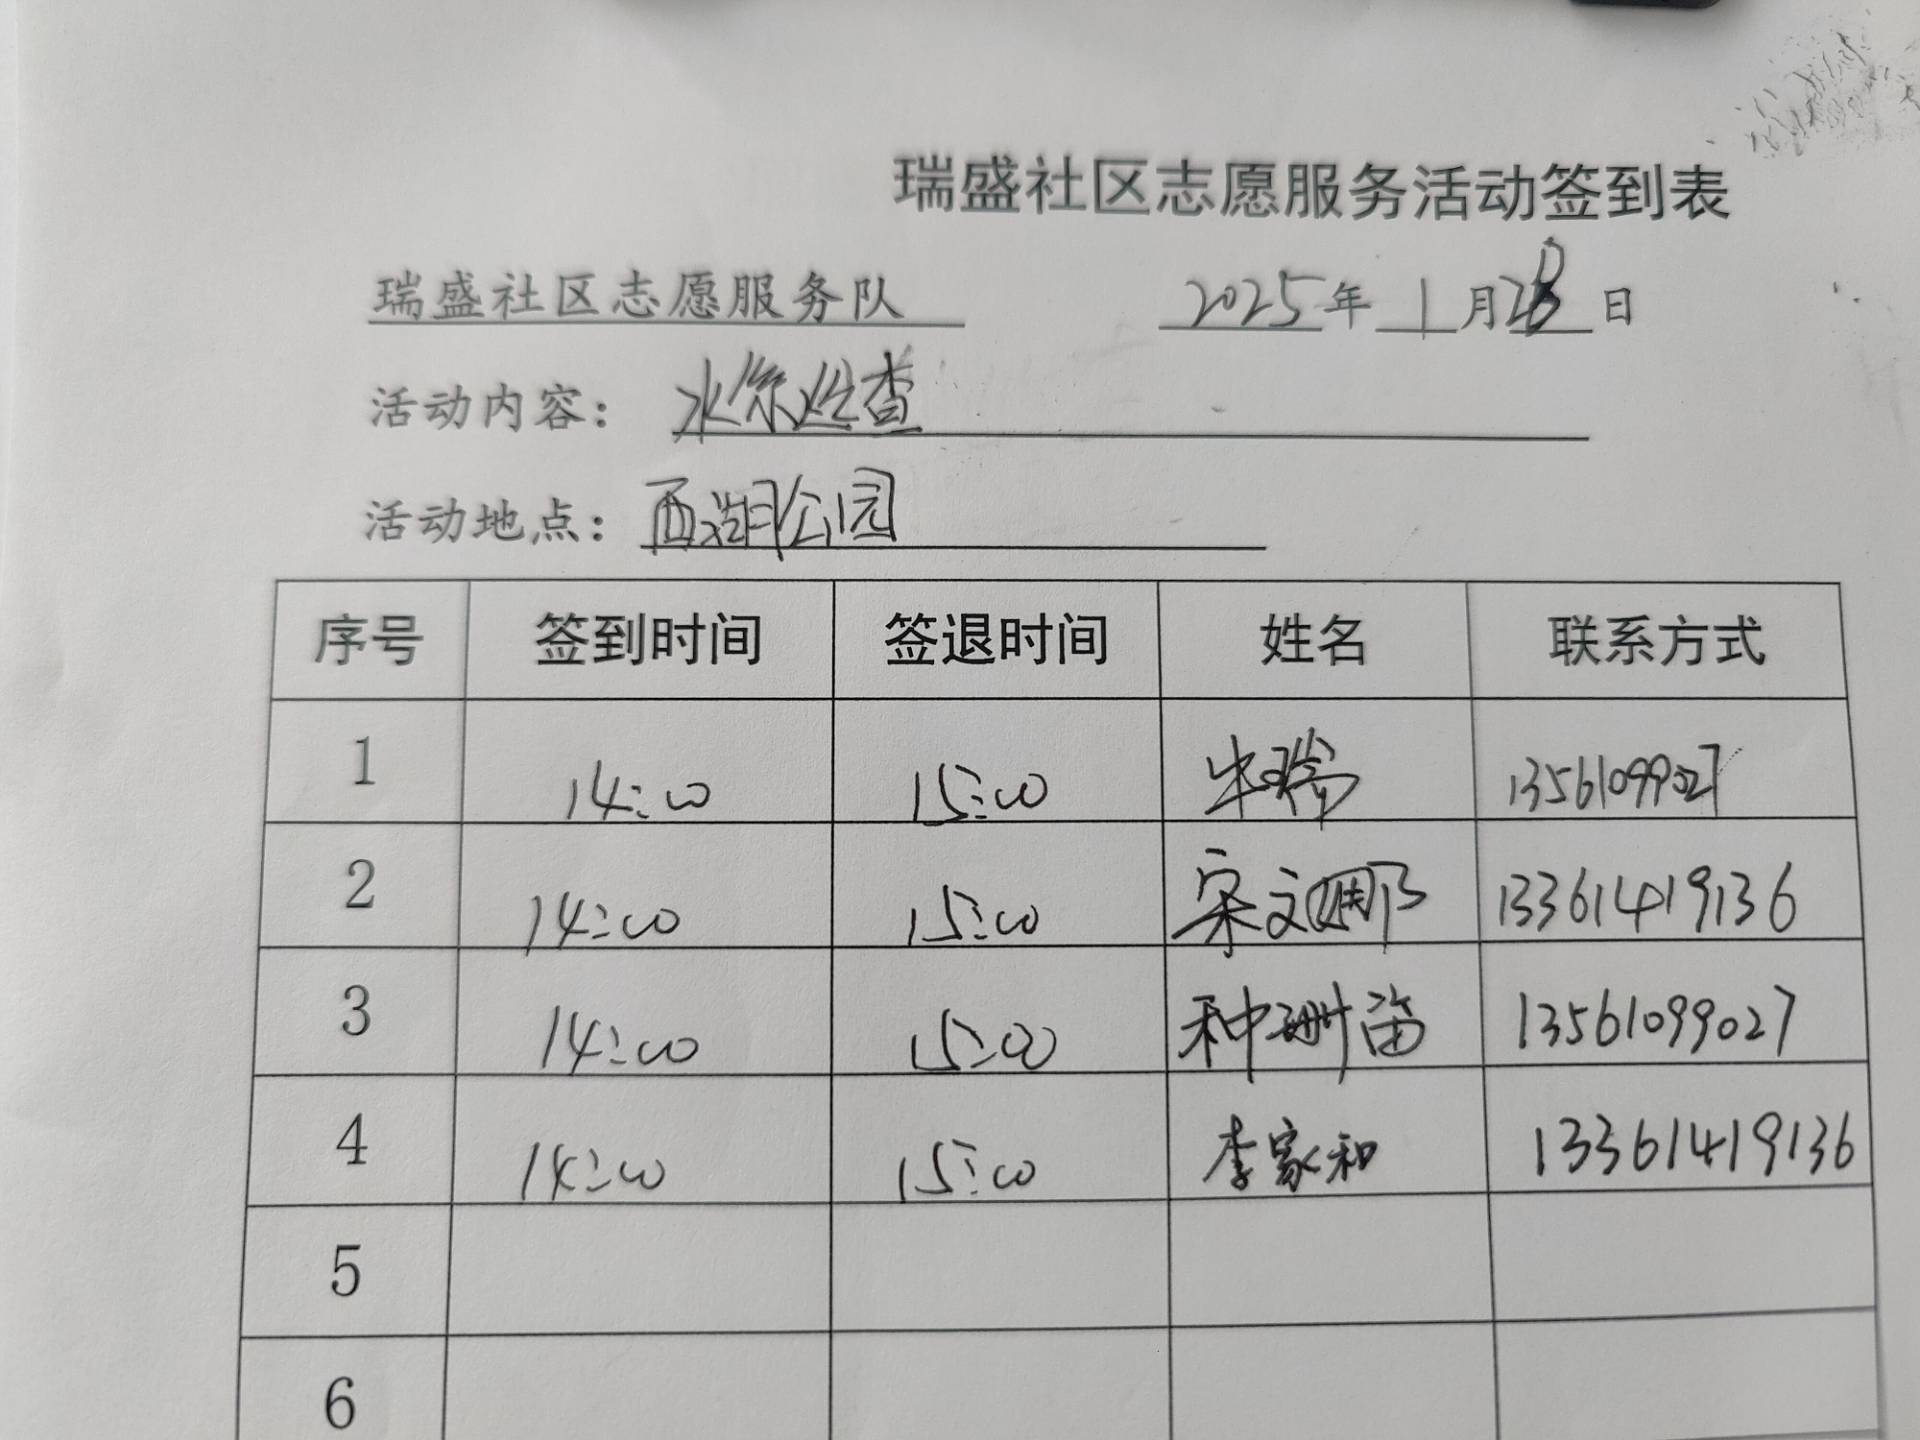 瑞盛社区志愿服务活动签到表
瑞盛社区志愿服务队 2025年1月28日
活动内容： 水体巡查
活动地点：西湖公园
序号 签到时间 签退时间 姓名 联系方式
1 14:00 15:00 牛瑞 13561099027
2 14:00 15:00 宋文娜 13361419136
3 14:00 15:00 种珊笛 13561099027
4 14:00 15:00 李家和 13361419136
5
6